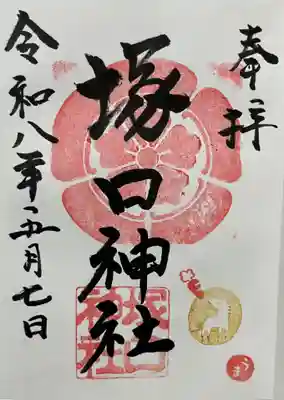 奉拝
塚口神社
令和八年五月七日
塚口神社
うま